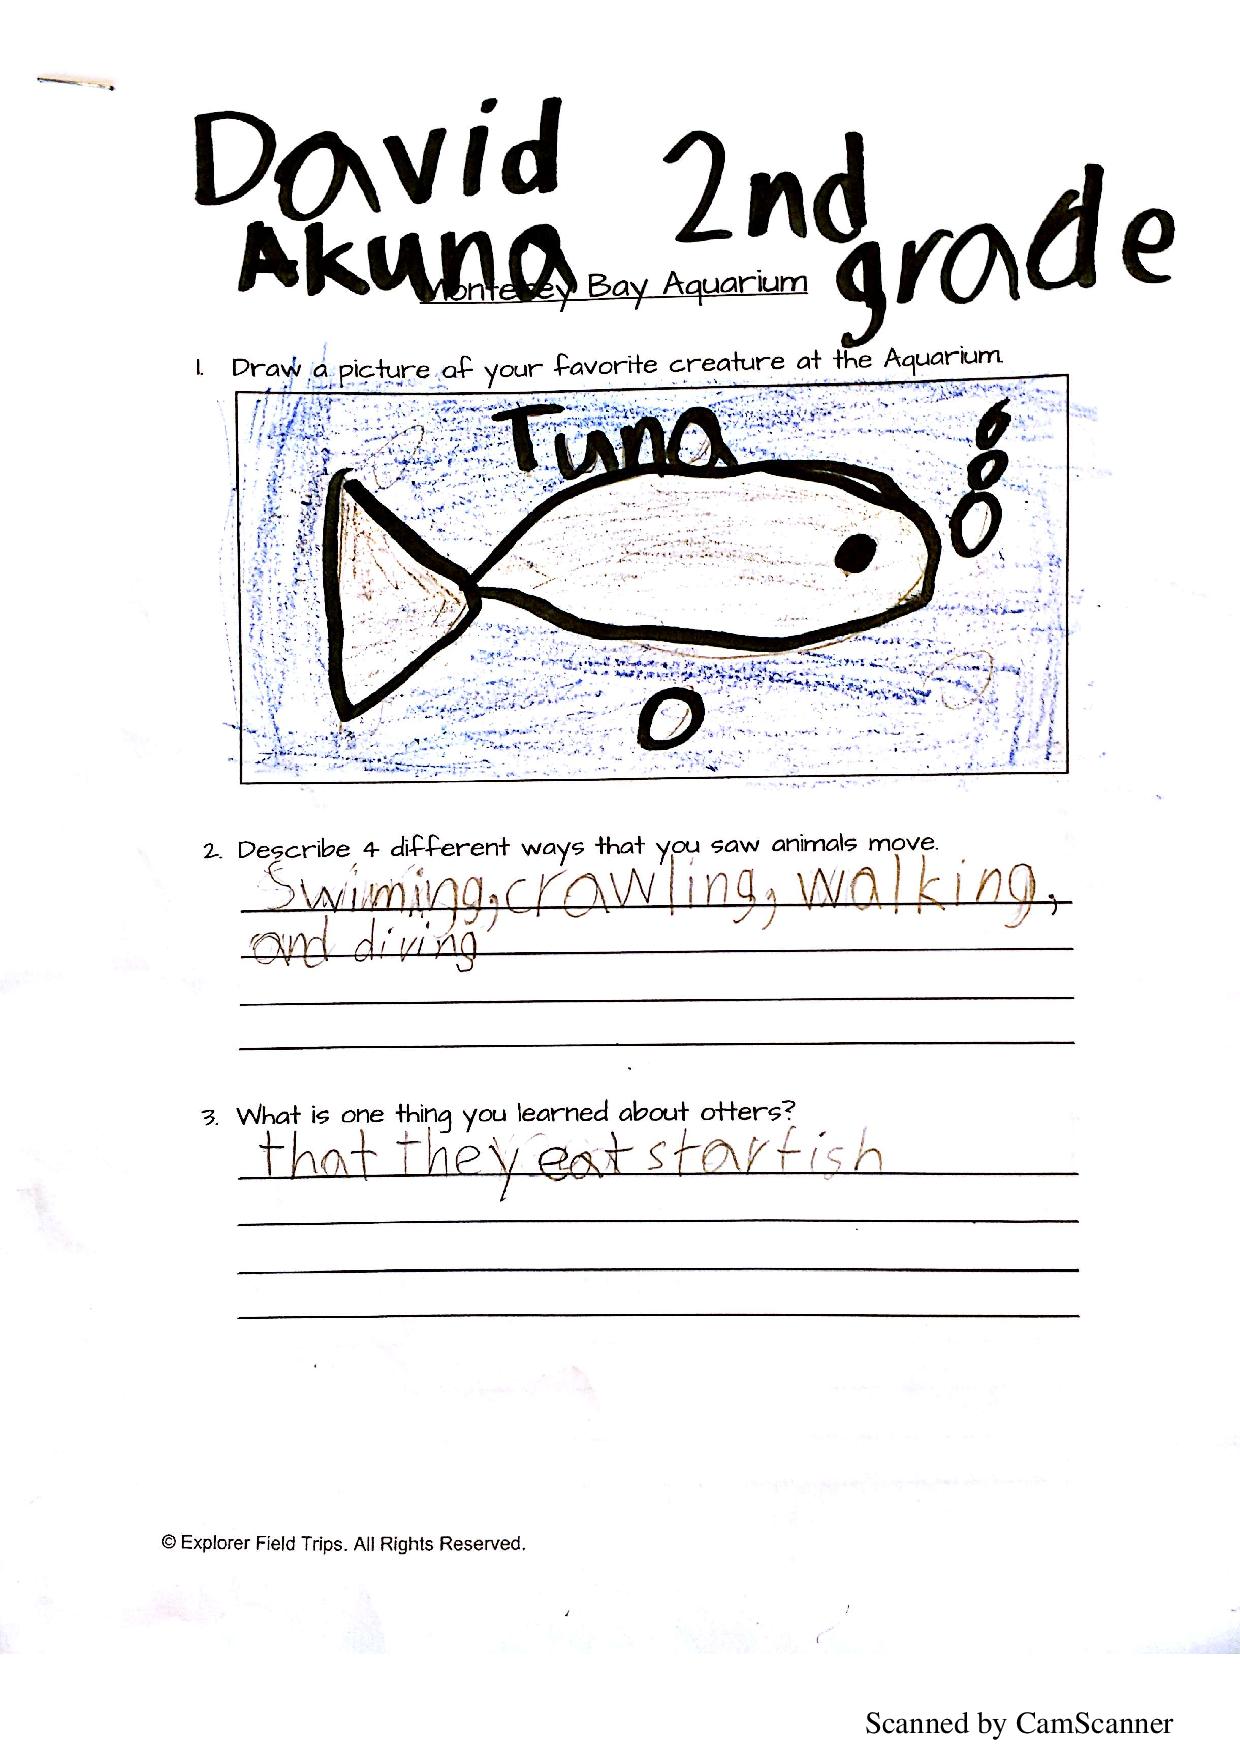 David 2nd
Akuna grade
Monterey Bay Aquarium
1. Draw a picture of your favorite creature at the Aquarium.
Tuna
2. Describe 4 different ways that you saw animals move.
Swiming, crawling, walking,
and diving
3. What is one thing you learned about otters?
that they eat starfish
© Explorer Field Trips. All Rights Reserved.
Scanned by CamScanner